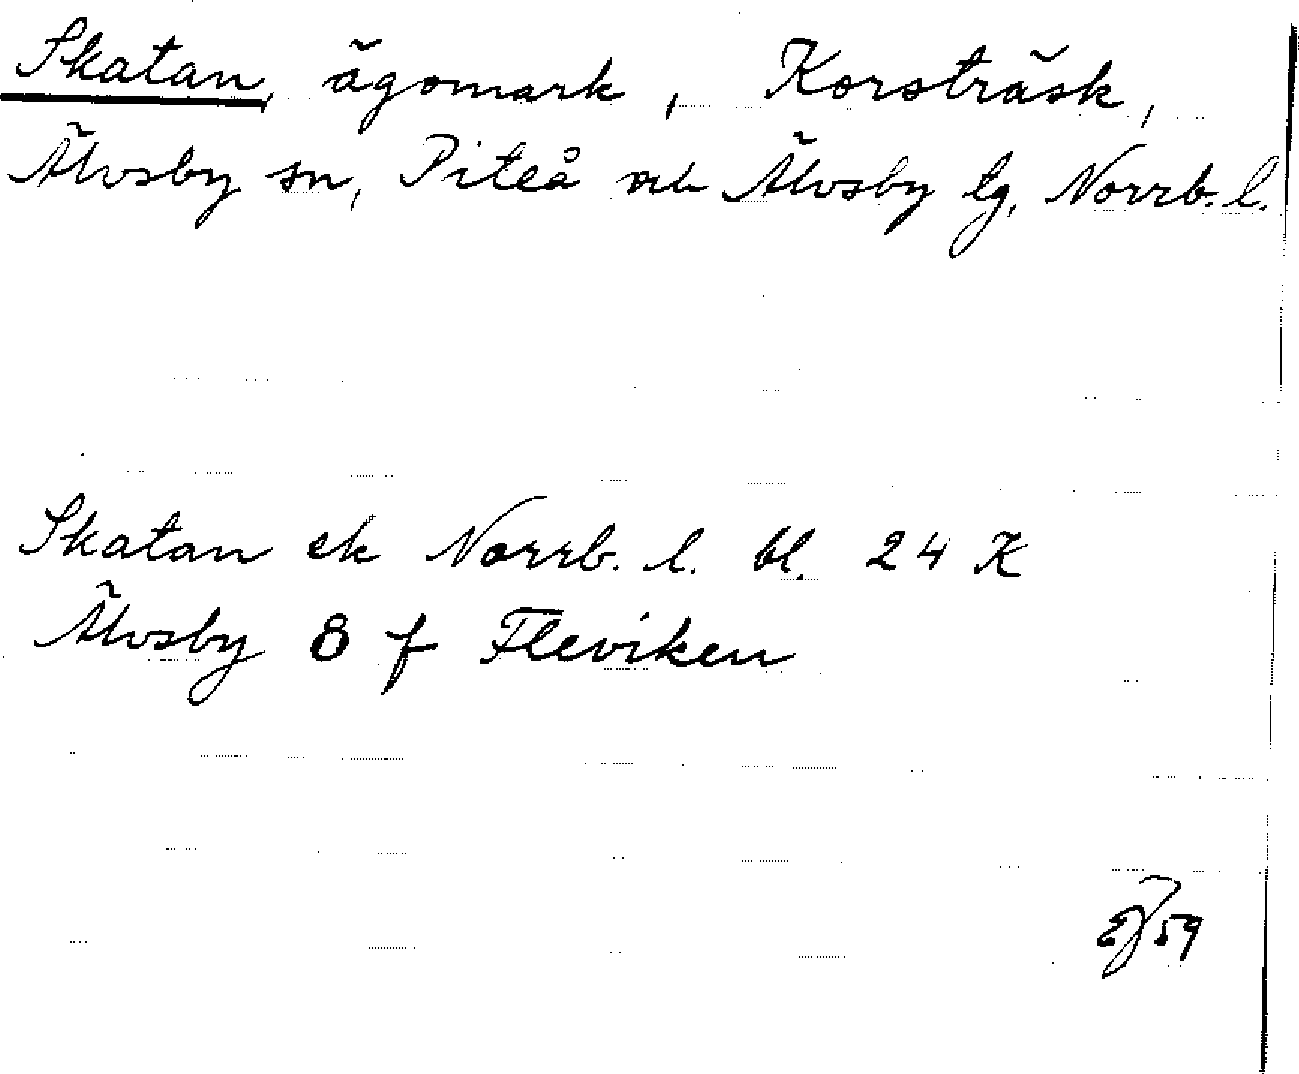 Skatan, ägomark, Korsträsk,
Älvsby sn, Piteå Älvsby lg, Norrb. l.
Skatan ek Norrb. l. bl. 24 K
Älvsby 8 f Fleviken